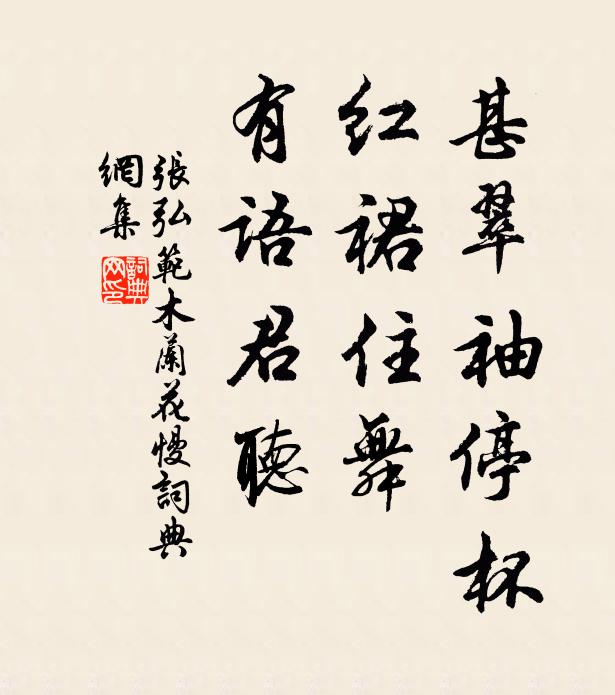 甚翠袖停杯
红裙住舞
有语君聽
張弘範木蘭花慢詞典
網集
詞典網印